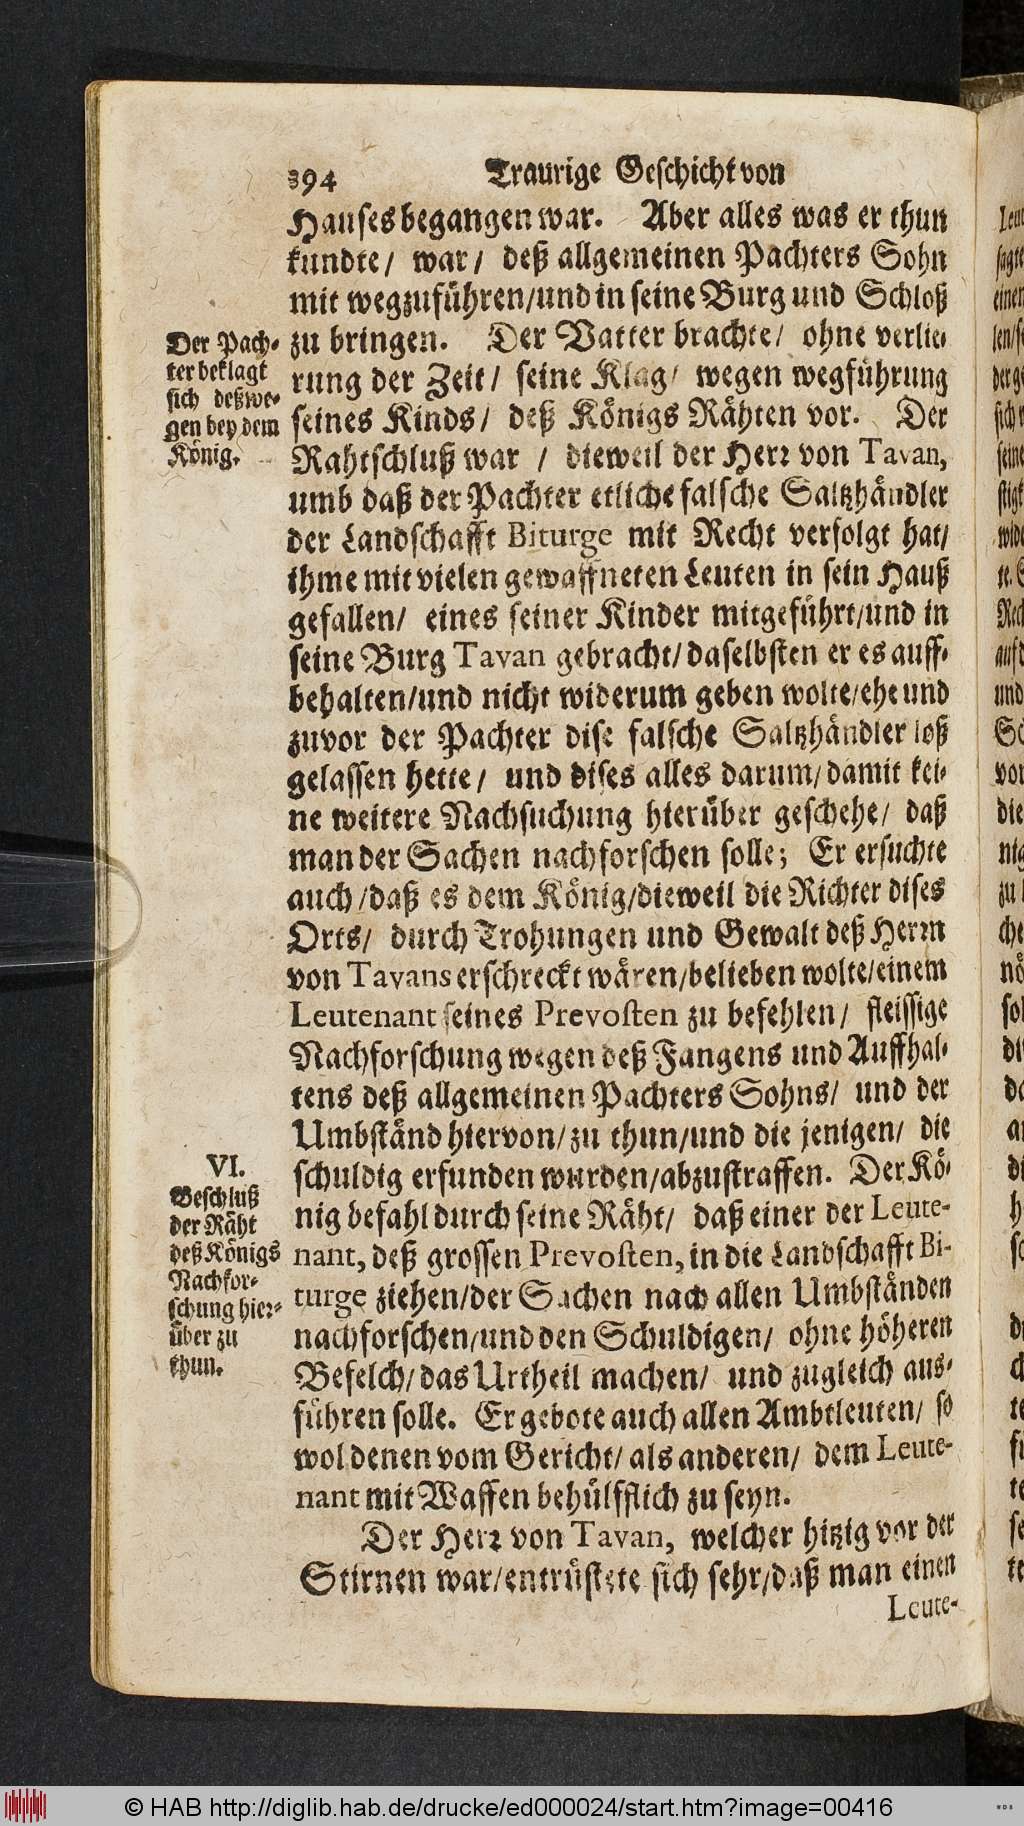 394 Traurige Geschicht von
Hauses begangen war. Aber alles was er thun
kundte/ war/ deß allgemeinen Pachters Sohn
mit wegzuführen/und in seine Burg und Schloß
zu bringen. Der Vatter brachte/ ohne verlie-
rung der Zeit/ seine Klag/ wegen wegführung
seines Kinds/ deß Königs Rähten vor. Der
Rahtschluß war / dieweil der Herr von Tavan,
umb daß der Pachter etliche falsche Saltzhändler
der Landschafft Biturge mit Recht verfolgt hat/
ihme mit vielen gewaffneten Leuten in sein Hauß
gefallen/ eines seiner Kinder mitgeführt/und in
seine Burg Tavan gebracht/daselbsten er es auff-
behalten/und nicht widerum geben wolte/ehe und
zuvor der Pachter dise falsche Saltzhändler loß
gelassen hette/ und dises alles darum/damit kei-
ne weitere Nachsuchung hierüber geschehe/ daß
man der Sachen nachforschen solle; Er ersuchte
auch/daß es dem König/dieweil die Richter dises
Orts/ durch Trohungen und Gewalt deß Herrn
von Tavans erschreckt wären/belieben wolte/einem
Leutenant seines Prevosten zu befehlen/ fleissige
Nachforschung wegen deß Fangens und Auffhal-
tens deß allgemeinen Pachters Sohns/ und der
Umbständ hiervon/zu thun/und die jenigen/ die
schuldig erfunden wurden/abzustraffen. Der Kö-
nig befahl durch seine Räht/ daß einer der Leute-
nant, deß grossen Prevosten, in die Landschafft Bi-
turge ziehen/der Sachen nach allen Umbständen
nachforschen/und den Schuldigen/ ohne höheren
Befelch/das Urtheil machen/ und zugleich aus-
führen solle. Er gebote auch allen Ambtleuten/ so
wol denen vom Gericht/als anderen/ dem Leute-
nant mit Waffen behülfflich zu seyn.
Der Herr von Tavan, welcher hitzig vor der
Stirnen war/entrüstete sich sehr/daß man einen
Leute-
Der Pach-
ter beklagt
sich deßwe-
gen bey dem
König.
VI.
Beschluß
der Räht
deß Königs
Nachfor-
schung hier-
über zu
thun.
© HAB http://diglib.hab.de/drucke/ed000024/start.htm?image=00416